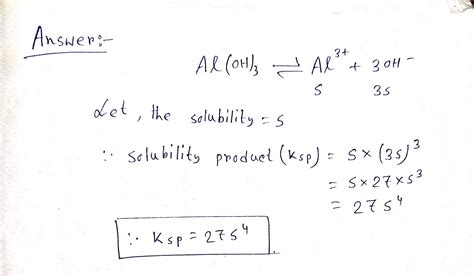 Answer:-
Al(OH)3 ⇌ Al3+ + 3OH-
S 3s
Let, the solubility = s
∵ solubility product (Ksp) = s×(3s)3
= s×27×s3
= 27s4
∵ Ksp = 27s4